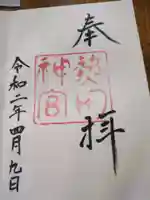 奉拝
熱田神宮
令和二年四月九日